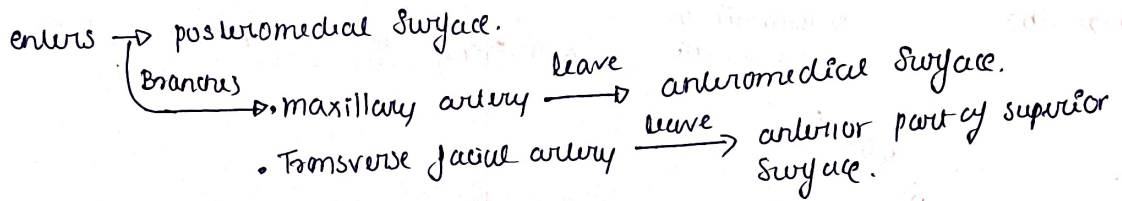 enters → posteromedial surface.
Branches
leave
• maxillary artery → anteromedial surface.
leave
• Transverse facial artery → anterior part of superior
surface.